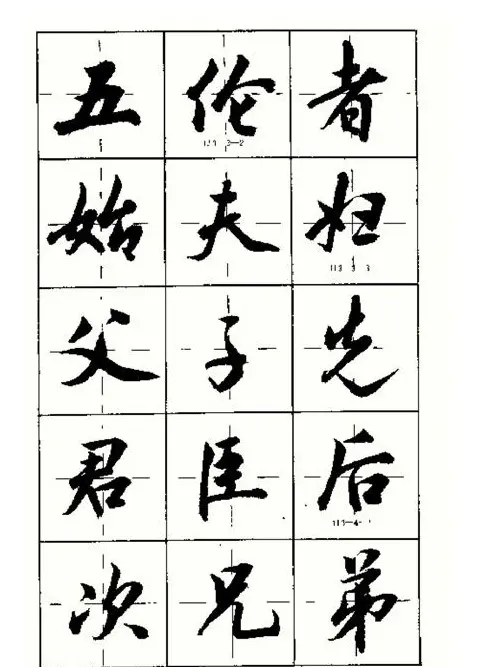 五伦者
始夫妇
父子先
君臣后
次兄弟